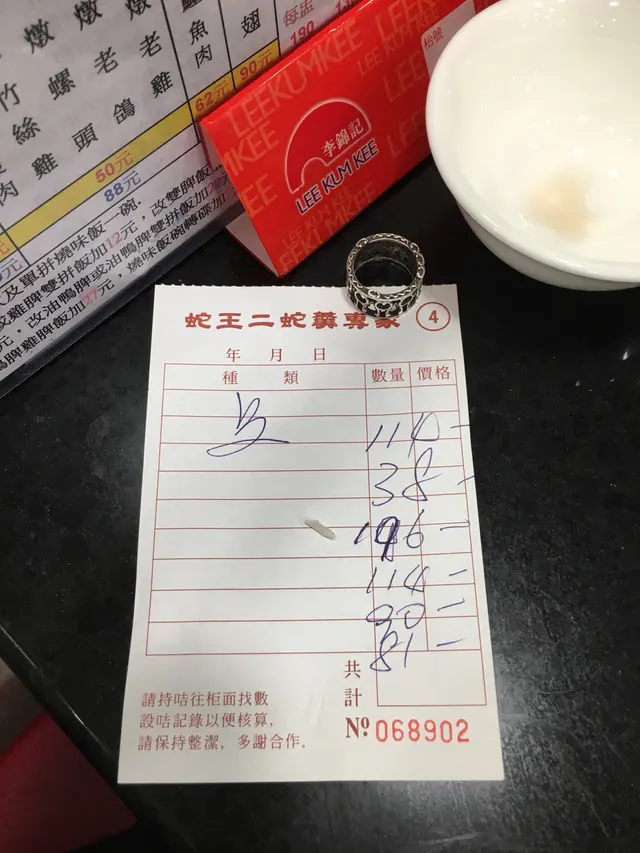 燉 燉 燉 魚 翅 每盅
竹 螺 老 老 肉
絲 雞 頭 鴿 雞
62元 90元 190
50元
88元
及單拼燒味飯一碗。
或雞脾雙拼飯加12元，改雙脾飯
元，改油鴨脾或油鴨脾雙拼飯加2
鴨脾雞脾飯加27元，燒味飯碗轉碟加
LEEKUMKEE
李錦記
LEE KUM KEE
枱號
蛇王二蛇羹專家 4
年 月 日
種 類 數量 價格
110-
38-
196-
114-
90-
81-
共
計
請持咭往柜面找數
設咭記錄以便核算，
請保持整潔，多謝合作。
Nº 068902